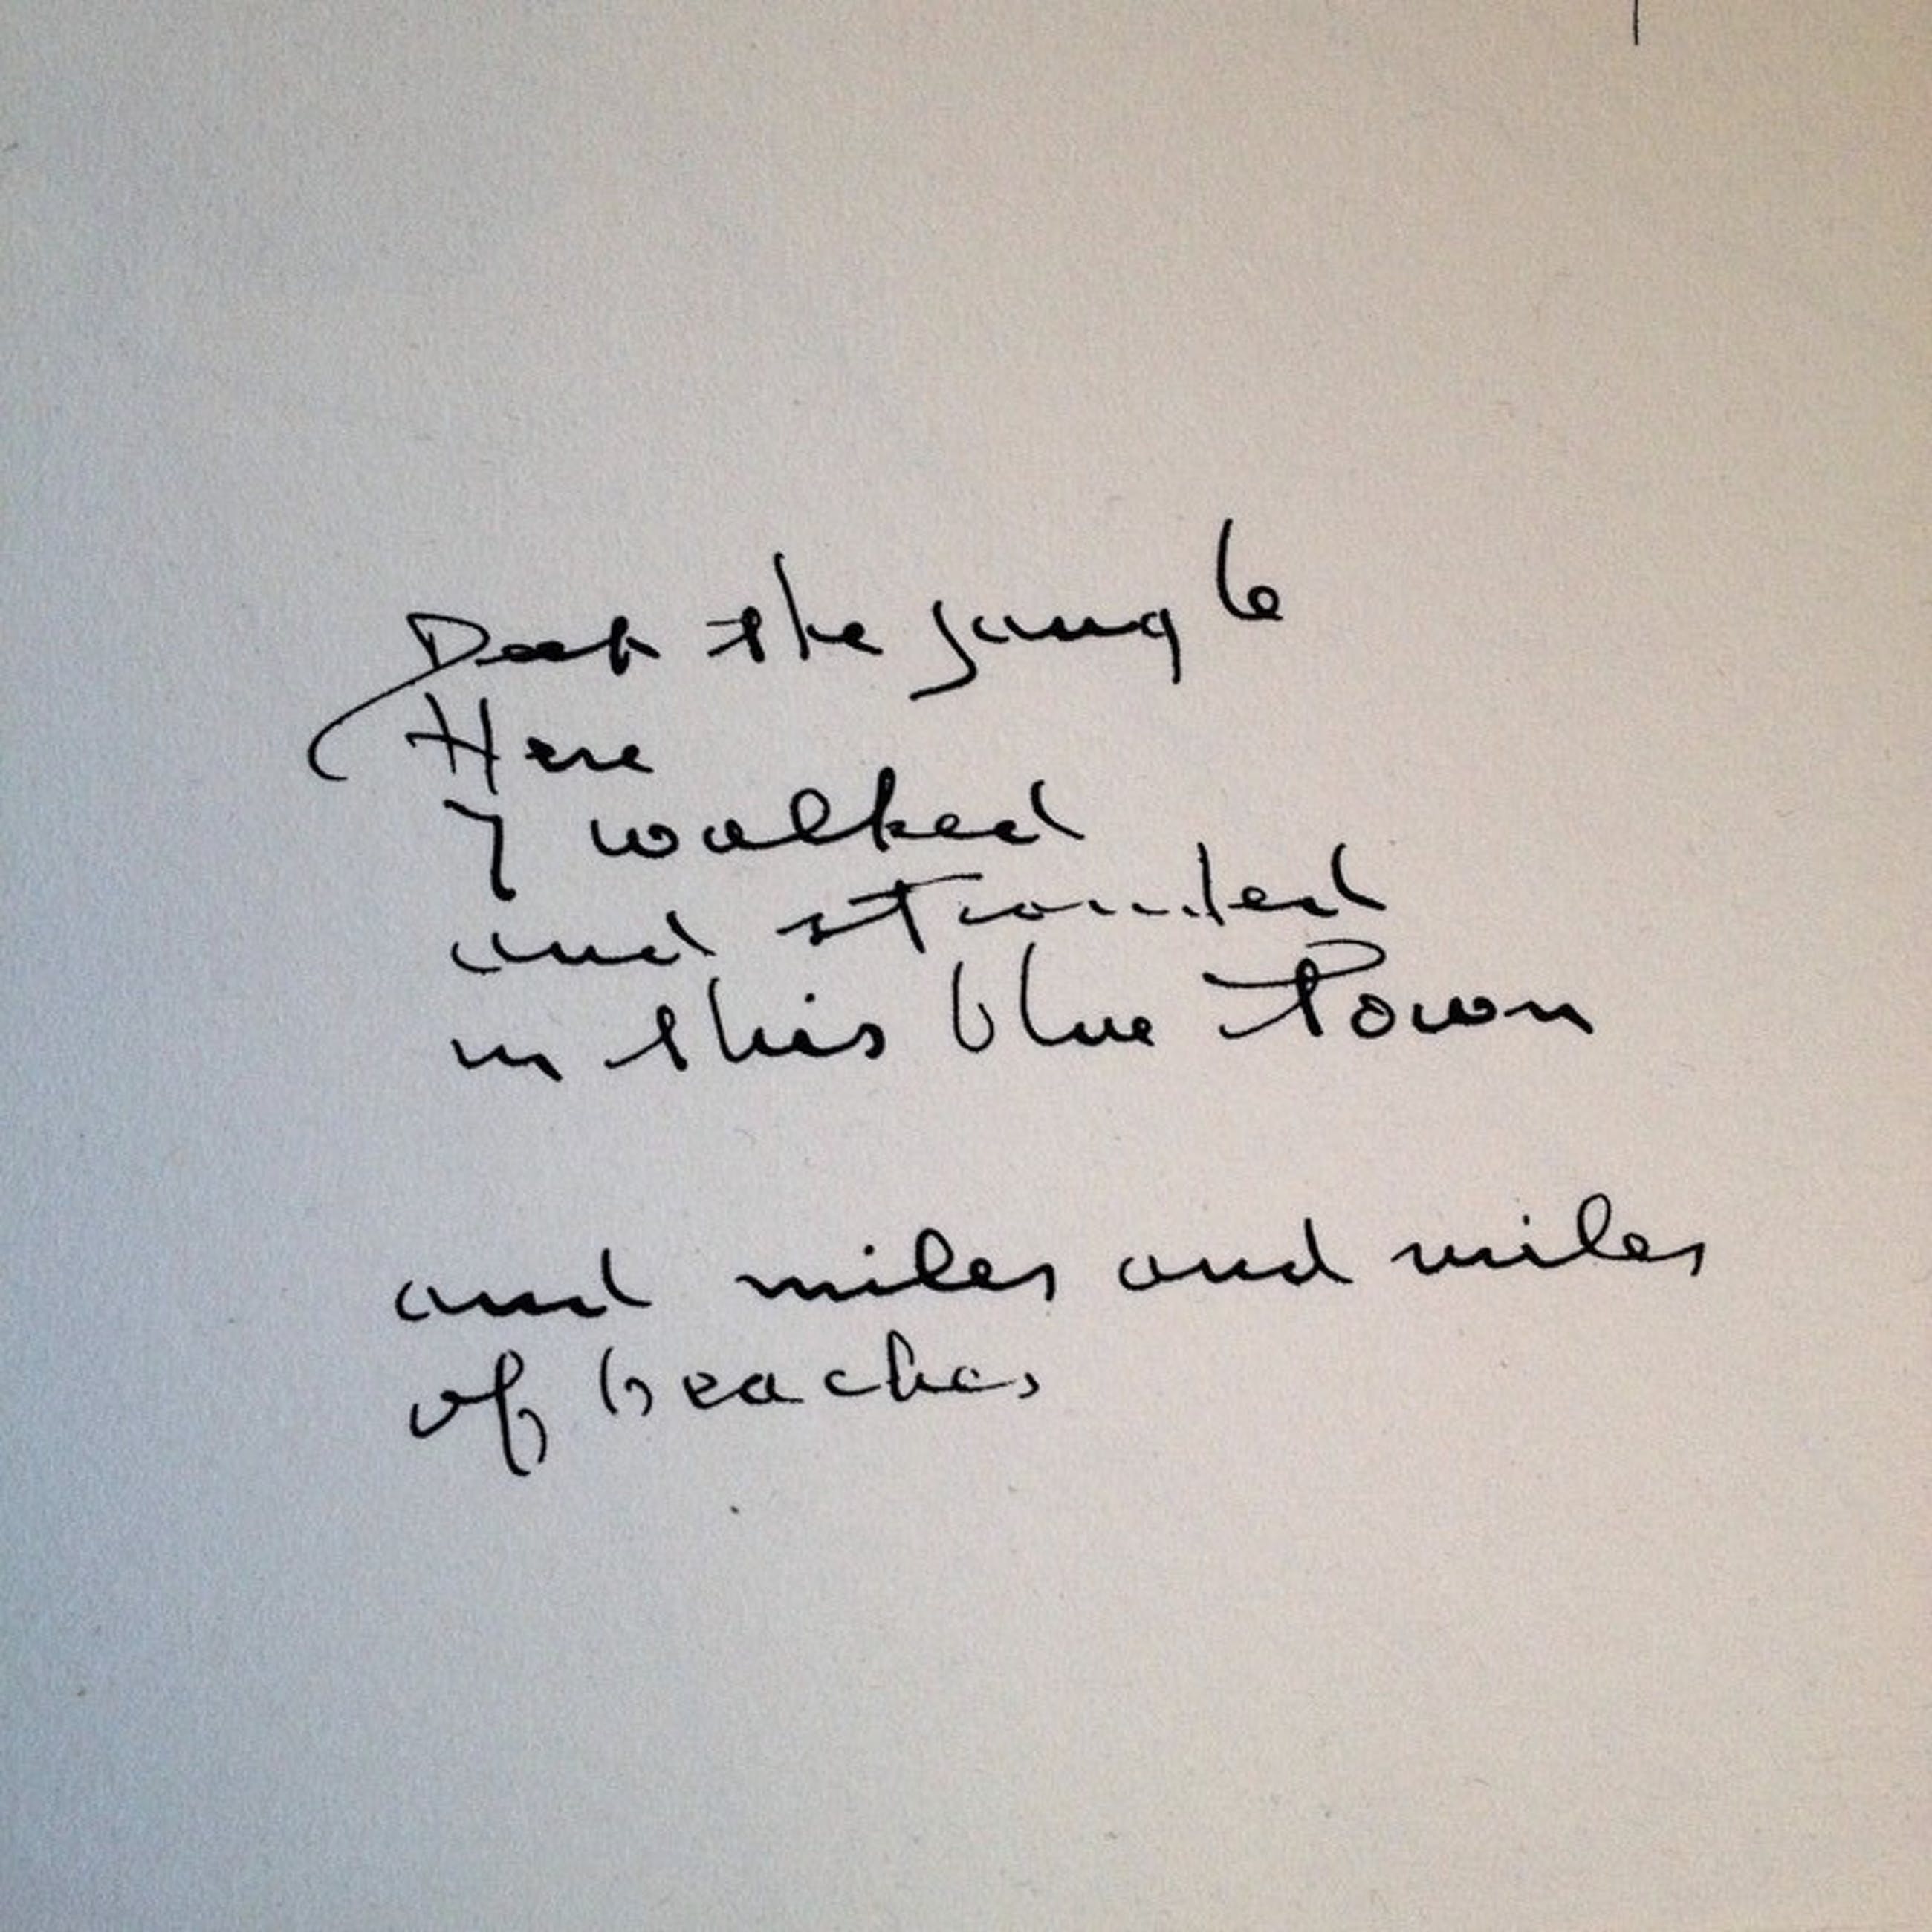 Deep the jungle
Here
I walked
and stranded
in this blue Town
and miles and miles
of beaches